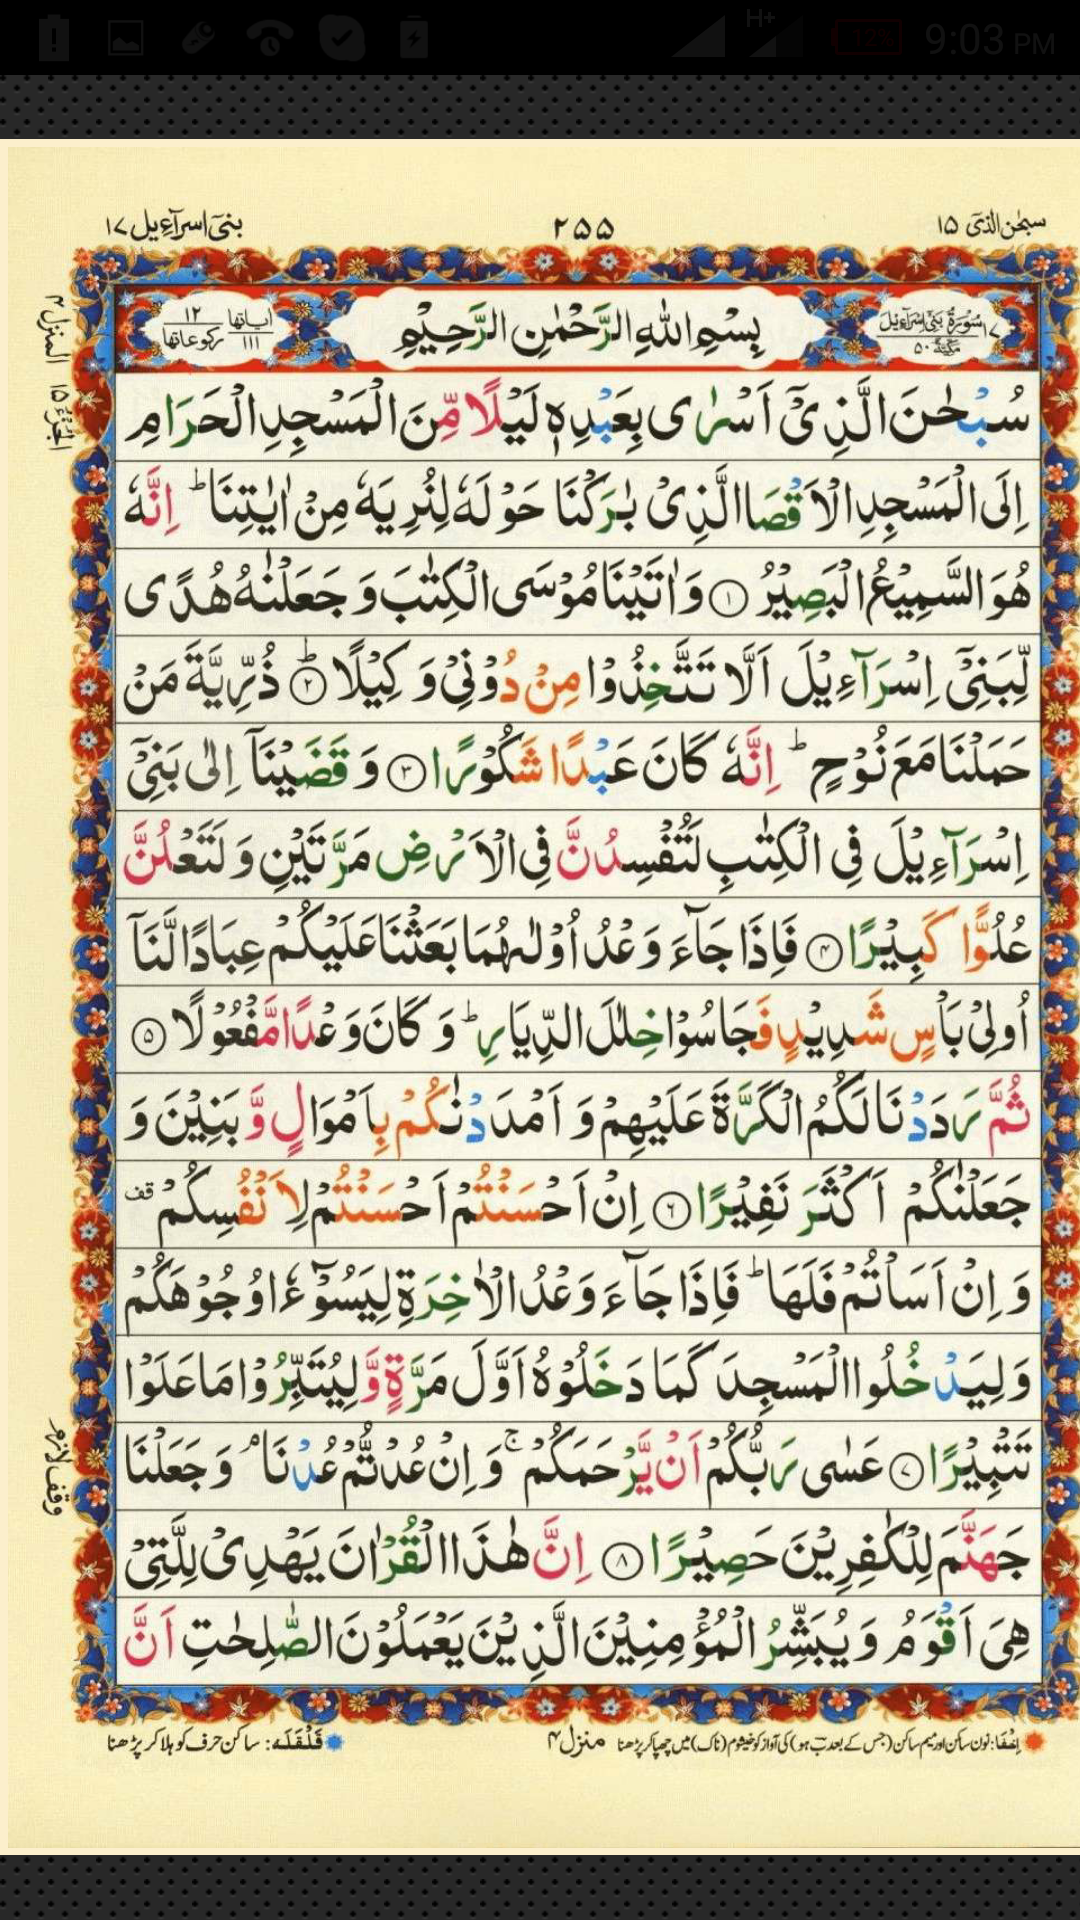 H+
12%
9:03 PM
سبحٰن الذیٓ ١٥
٢٥٥
بنیٓ اسرآءیل ١٧
١٧ سُوْرَةُ بَنِیْٓ اِسْرَآءِیْلَ مَكِّیَّةٌ ٥٠
بِسْمِ اللهِ الرَّحْمٰنِ الرَّحِیْمِ
اٰیاتها ١١١ رکوعاتها ١٢
المنزل ٤
الجزء ١٥
سُبْحٰنَ الَّذِیْٓ اَسْرٰی بِعَبْدِهٖ لَیْلًا مِّنَ الْمَسْجِدِ الْحَرَامِ
اِلَی الْمَسْجِدِ الْاَقْصَا الَّذِیْ بٰرَكْنَا حَوْلَهٗ لِنُرِیَهٗ مِنْ اٰیٰتِنَا ؕ اِنَّهٗ
هُوَ السَّمِیْعُ الْبَصِیْرُ ﴿١﴾ وَ اٰتَیْنَا مُوْسَی الْكِتٰبَ وَ جَعَلْنٰهُ هُدًی
لِّبَنِیْٓ اِسْرَآءِیْلَ اَلَّا تَتَّخِذُوْا مِنْ دُوْنِیْ وَكِیْلًا ﴿٢﴾ؕ ذُرِّیَّةَ مَنْ
حَمَلْنَا مَعَ نُوْحٍ ؕ اِنَّهٗ كَانَ عَبْدًا شَكُوْرًا ﴿٣﴾ وَ قَضَیْنَآ اِلٰی بَنِیْٓ
اِسْرَآءِیْلَ فِی الْكِتٰبِ لَتُفْسِدُنَّ فِی الْاَرْضِ مَرَّتَیْنِ وَ لَتَعْلُنَّ
عُلُوًّا كَبِیْرًا ﴿٤﴾ فَاِذَا جَآءَ وَعْدُ اُوْلٰىهُمَا بَعَثْنَا عَلَیْكُمْ عِبَادًا لَّنَآ
اُولِیْ بَاْسٍ شَدِیْدٍ فَجَاسُوْا خِلٰلَ الدِّیَارِ ؕ وَ كَانَ وَعْدًا مَّفْعُوْلًا ﴿٥﴾
ثُمَّ رَدَدْنَا لَكُمُ الْكَرَّةَ عَلَیْهِمْ وَ اَمْدَدْنٰكُمْ بِاَمْوَالٍ وَّ بَنِیْنَ وَ
جَعَلْنٰكُمْ اَكْثَرَ نَفِیْرًا ﴿٦﴾ اِنْ اَحْسَنْتُمْ اَحْسَنْتُمْ لِاَنْفُسِكُمْ قف
وَ اِنْ اَسَاْتُمْ فَلَهَا ؕ فَاِذَا جَآءَ وَعْدُ الْاٰخِرَةِ لِیَسُوْٓءٗا وُجُوْهَكُمْ
وَ لِیَدْخُلُوا الْمَسْجِدَ كَمَا دَخَلُوْهُ اَوَّلَ مَرَّةٍ وَّ لِیُتَبِّرُوْا مَا عَلَوْا
تَتْبِیْرًا ﴿٧﴾ عَسٰی رَبُّكُمْ اَنْ یَّرْحَمَكُمْ ۚ وَ اِنْ عُدْتُّمْ عُدْنَا ۘ وَ جَعَلْنَا
وقف لازم
جَهَنَّمَ لِلْكٰفِرِیْنَ حَصِیْرًا ﴿٨﴾ اِنَّ هٰذَا الْقُرْاٰنَ یَهْدِیْ لِلَّتِیْ
هِیَ اَقْوَمُ وَ یُبَشِّرُ الْمُؤْمِنِیْنَ الَّذِیْنَ یَعْمَلُوْنَ الصّٰلِحٰتِ اَنَّ
اِخفَا: نون ساکن اور میم ساکن (جس کے بعد ب ہو) کی آواز کو خیشوم (ناک) میں چھپا کر پڑھنا
منزل ٤
قَلْقَلَه: ساکن حرف کو ہلا کر پڑھنا